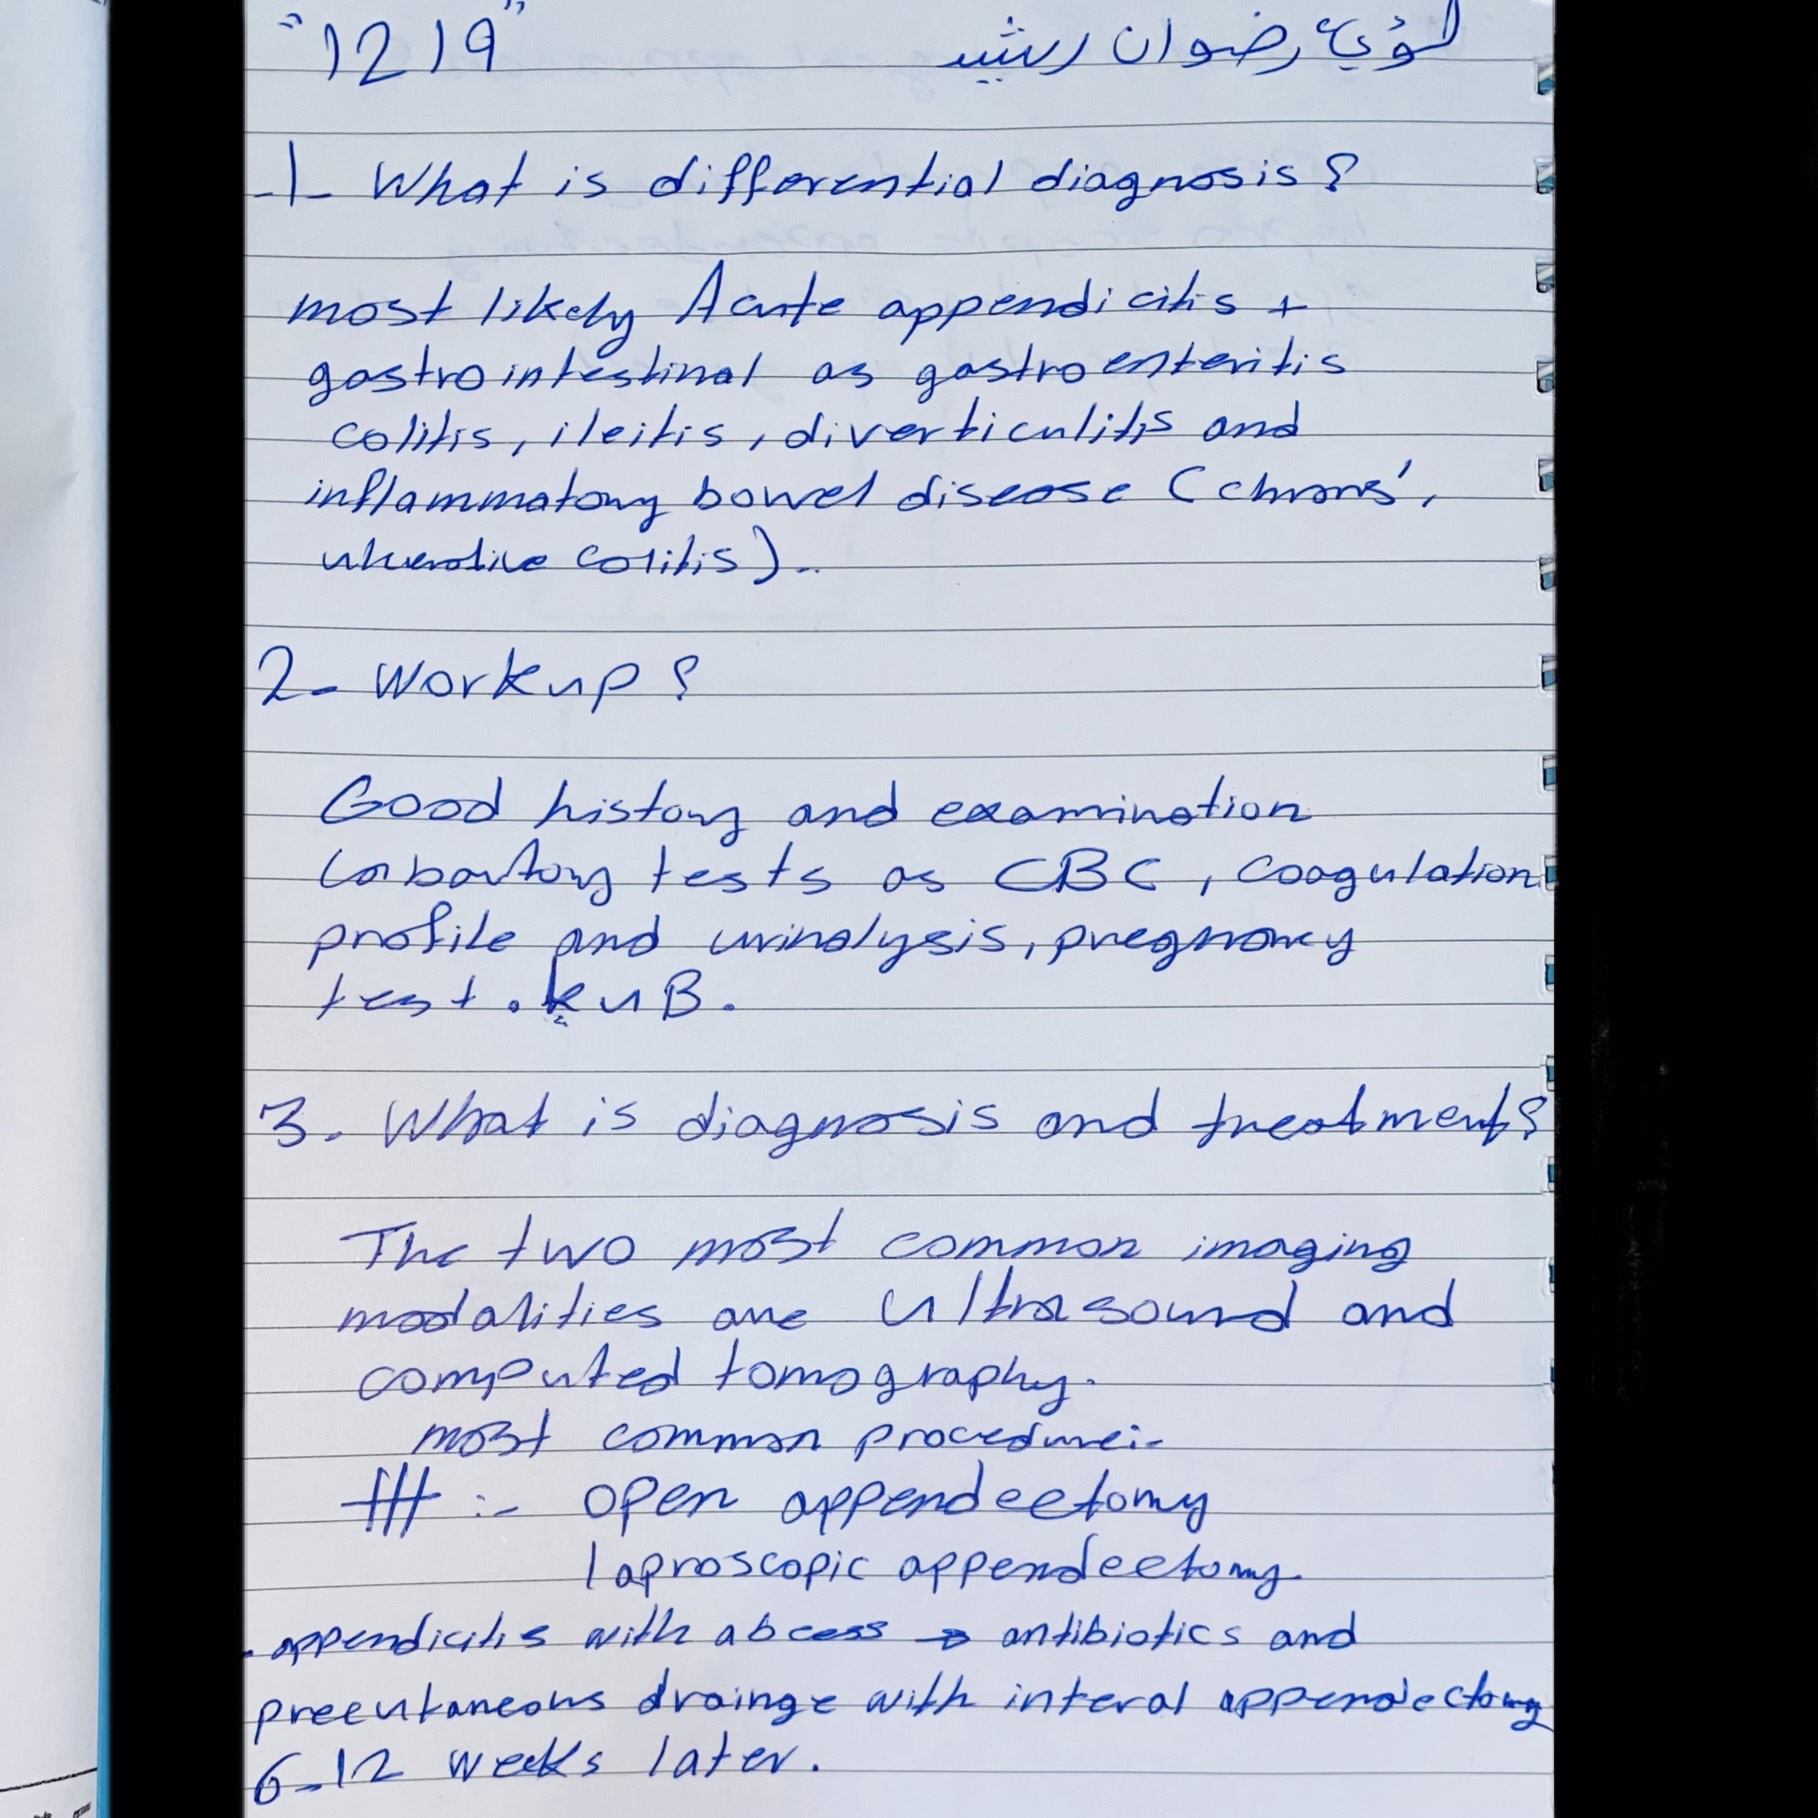 "1219" لؤيء رضوان رشيد
-1- What is differential diagnosis?
most likely Acute appendicitis +
gastrointestinal as gastroenteritis
colitis, ileitis, diverticulitis and
inflammatory bowel disease (chrons',
ulcerative colitis)..
2- Workup?
Good history and examination
Labartory tests as CBC, coagulation
profile and urinalysis, pregnancy
test. KUB.
3. What is diagnosis and treatment?
The two most common imaging
modalities are Ultrasound and
computed tomography.
most common procedure:-
ttt :- open appendeetomy
laproscopic appendeetomy.
. appendicitis with abcess → antibiotics and
preeutaneous drainge with interal appendectomy
6-12 weeks later.